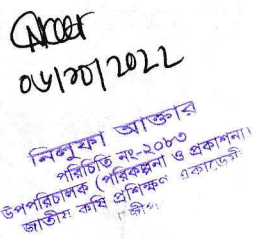 ০৬/১০/২০২২
নিলুফা আক্তার
পরিচিতি নং-২০৮৩
উপপরিচালক (পরিকল্পনা ও প্রকাশনা)
জাতীয় কৃষি প্রশিক্ষণ একাডেমী